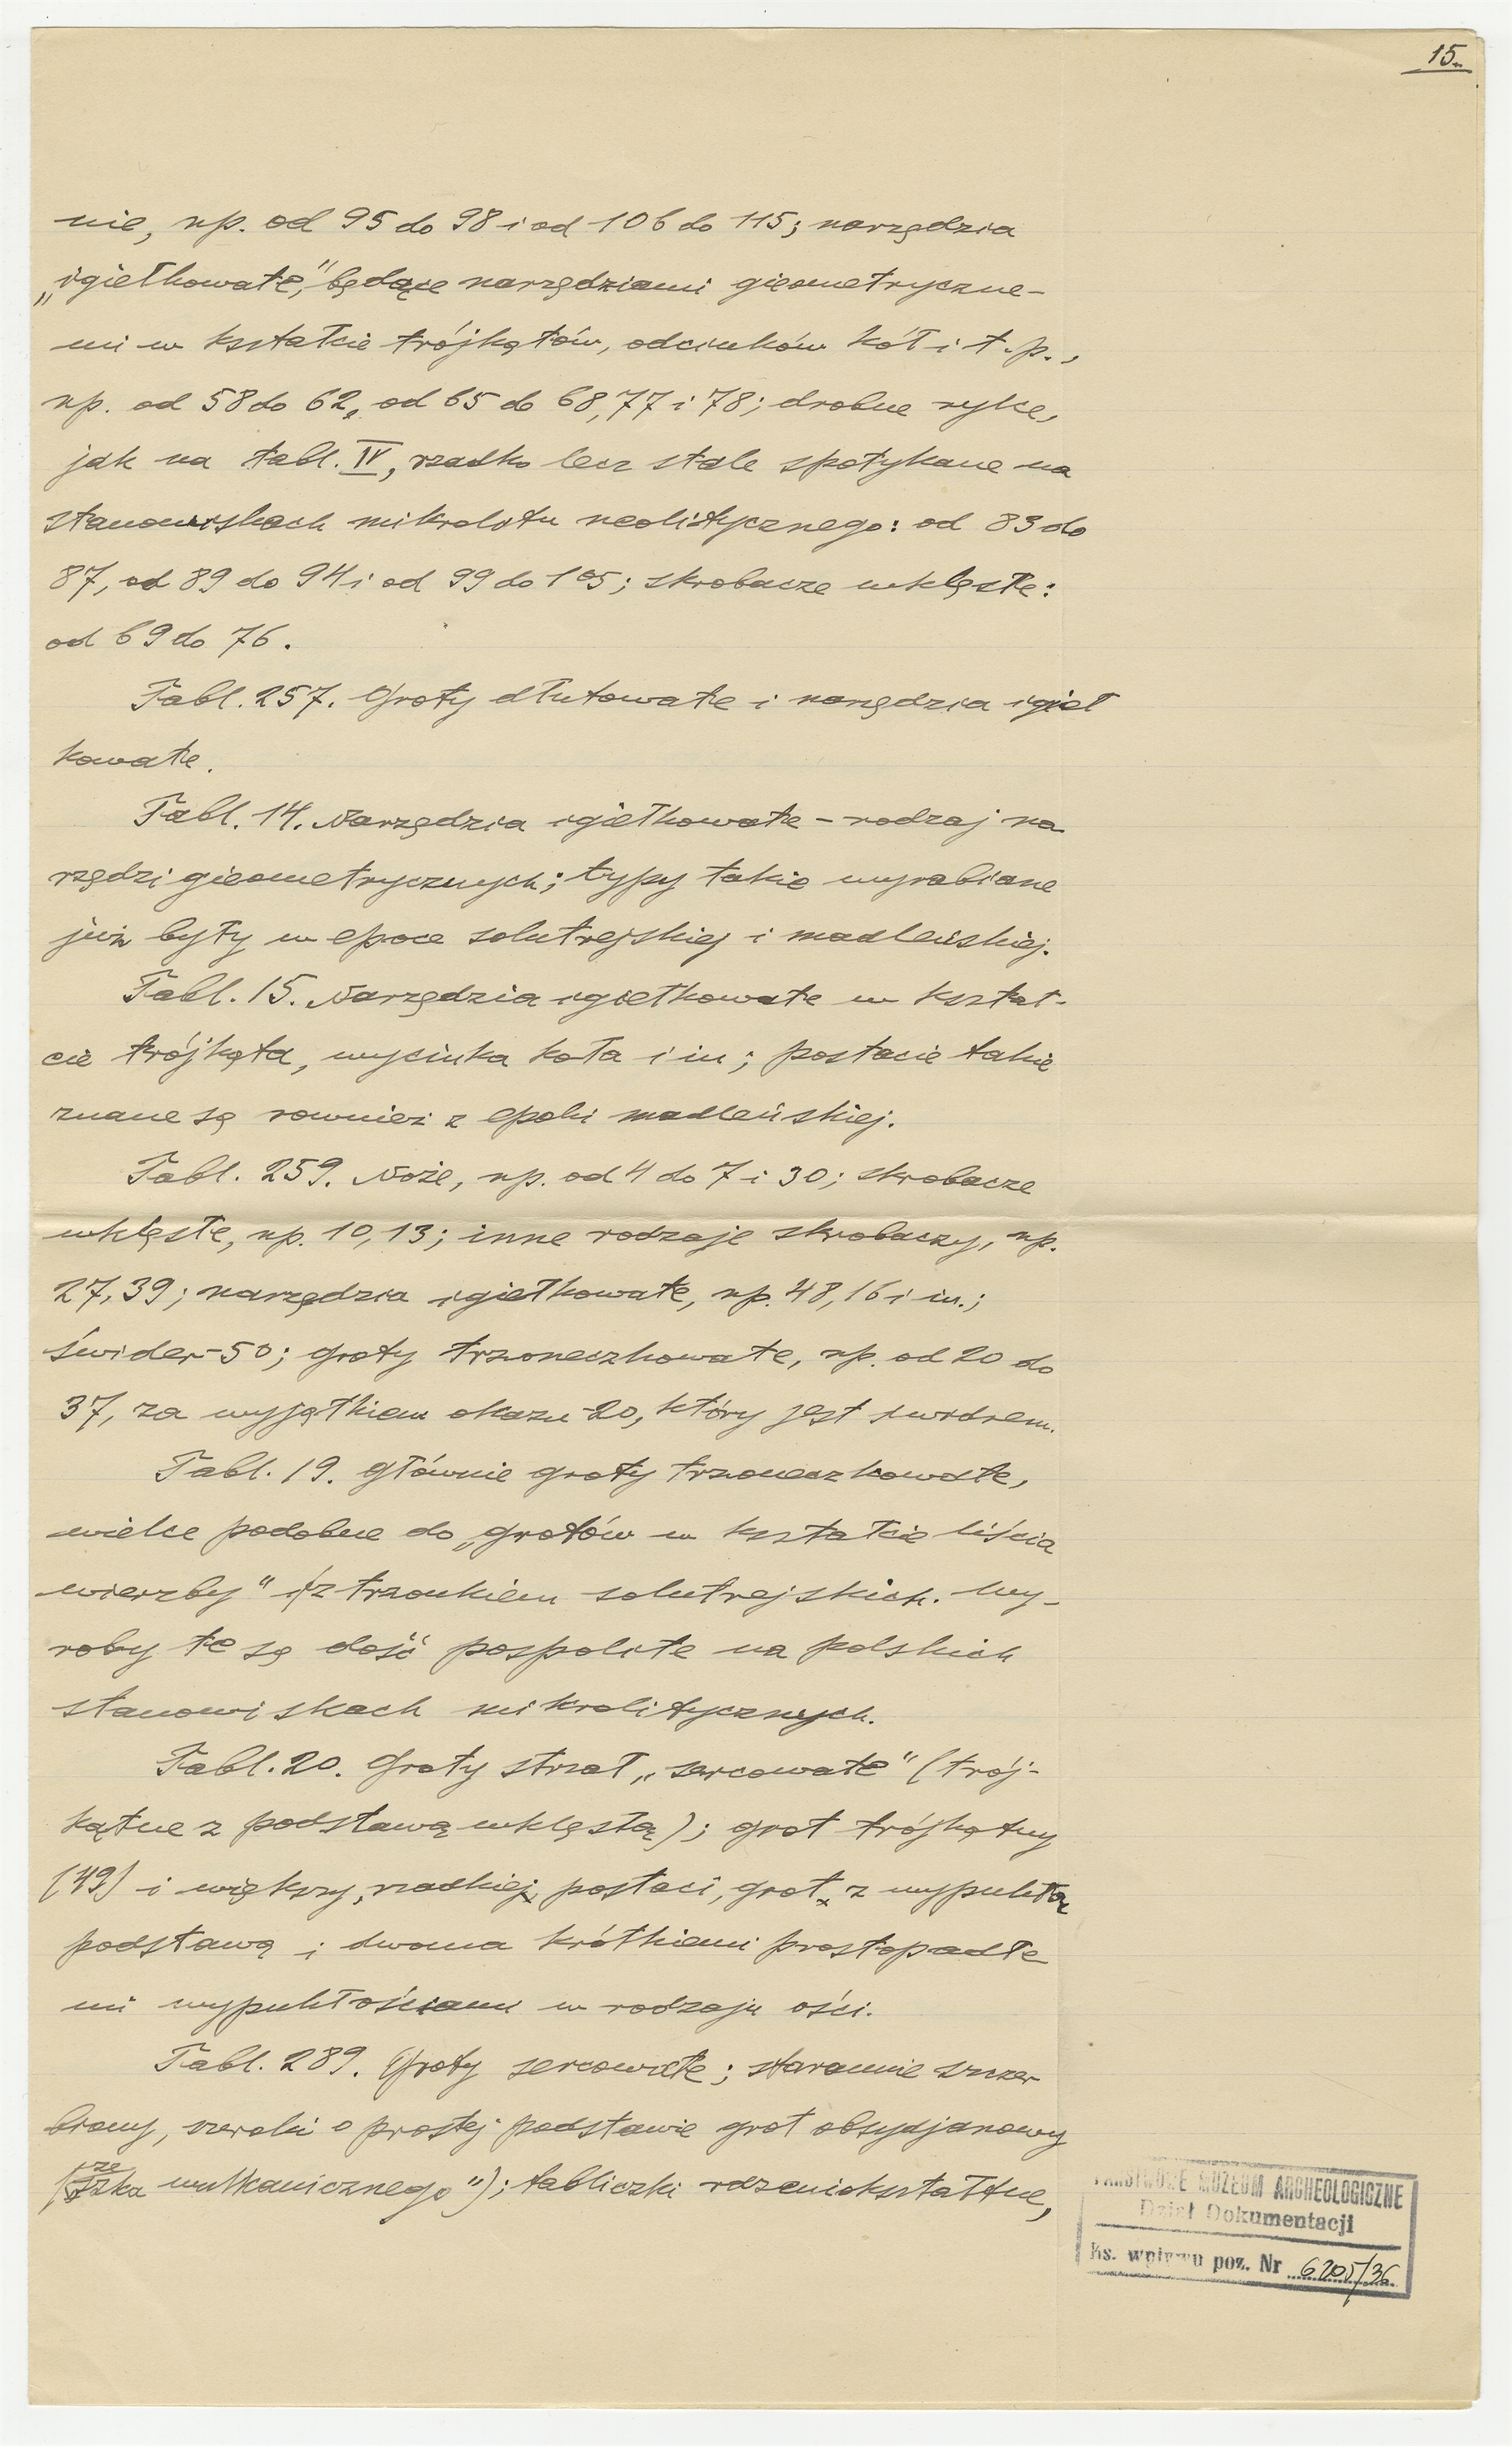 15.
nie, np. od 95 do 98 i od 106 do 115; narzędzia
„igiełkowate," będące narzędziami gieometryczne-
mi w kształcie trójkątów, odcinków kół i t. p.,
np. od 58 do 62, od 65 do 68, 77 i 78; drobne rylce,
jak na tabl. IV, rzadko lecz stale spotykane na
stanowiskach mikrolitu neolitycznego: od 83 do
87, od 89 do 94 i od 99 do 105; skrobacze wklęsłe:
od 69 do 76.
Tabl. 257. Groty dłutowate i narzędzia igieł
kowate.
Tabl. 14. Narzędzia igiełkowate - rodzaj na
rzędzi gieometrycznych; typy takie wyrabiane
już były w epoce solutrejskiej i madleńskiej.
Tabl. 15. Narzędzia igiełkowate w kształ-
cie trójkąta, wycinka koła i in; postacie takie
znane są rownież z epoki madleńskiej.
Tabl. 259. Noże, np. od 4 do 7 i 30; skrobacze
wklęsłe, np. 10, 13; inne rodzaje skrobaczy, np.
27, 39; narzędzia igiełkowate, np. 48, 16 i in.;
świder-50; groty trzoneczkowate, np. od 20 do
37, za wyjątkiem okazu-20, który jest świdrem.
Tabl. 19. Głównie groty trzoneczkowate,
wielce podobne do „grotów w kształcie liścia
wierzby" z trzonkiem solutrejskich. Wy-
roby te są dość pospolite na polskich
stanowiskach mikrolitycznych.
Tabl. 20. Groty strzał „sercowate" (trój-
kątne z podstawą wklęsłą); grot trójkątny
(49) i większy, rzadkiej postaci, grot z wypukłą
podstawą i dwoma krótkiemi prostopadłe
mi wypukłościami w rodzaju ości.
Tabl. 289. Groty sercowate; starannie szczer
biony, szeroki o prostej podstawie grot obsydjanowy
wulkanicznego"); tabliczki rdzeniokształtne,
PAŃSTWOWE MUZEUM ARCHEOLOGICZNE
Dział Dokumentacji
Ks. wpływu poz. Nr 6205/36